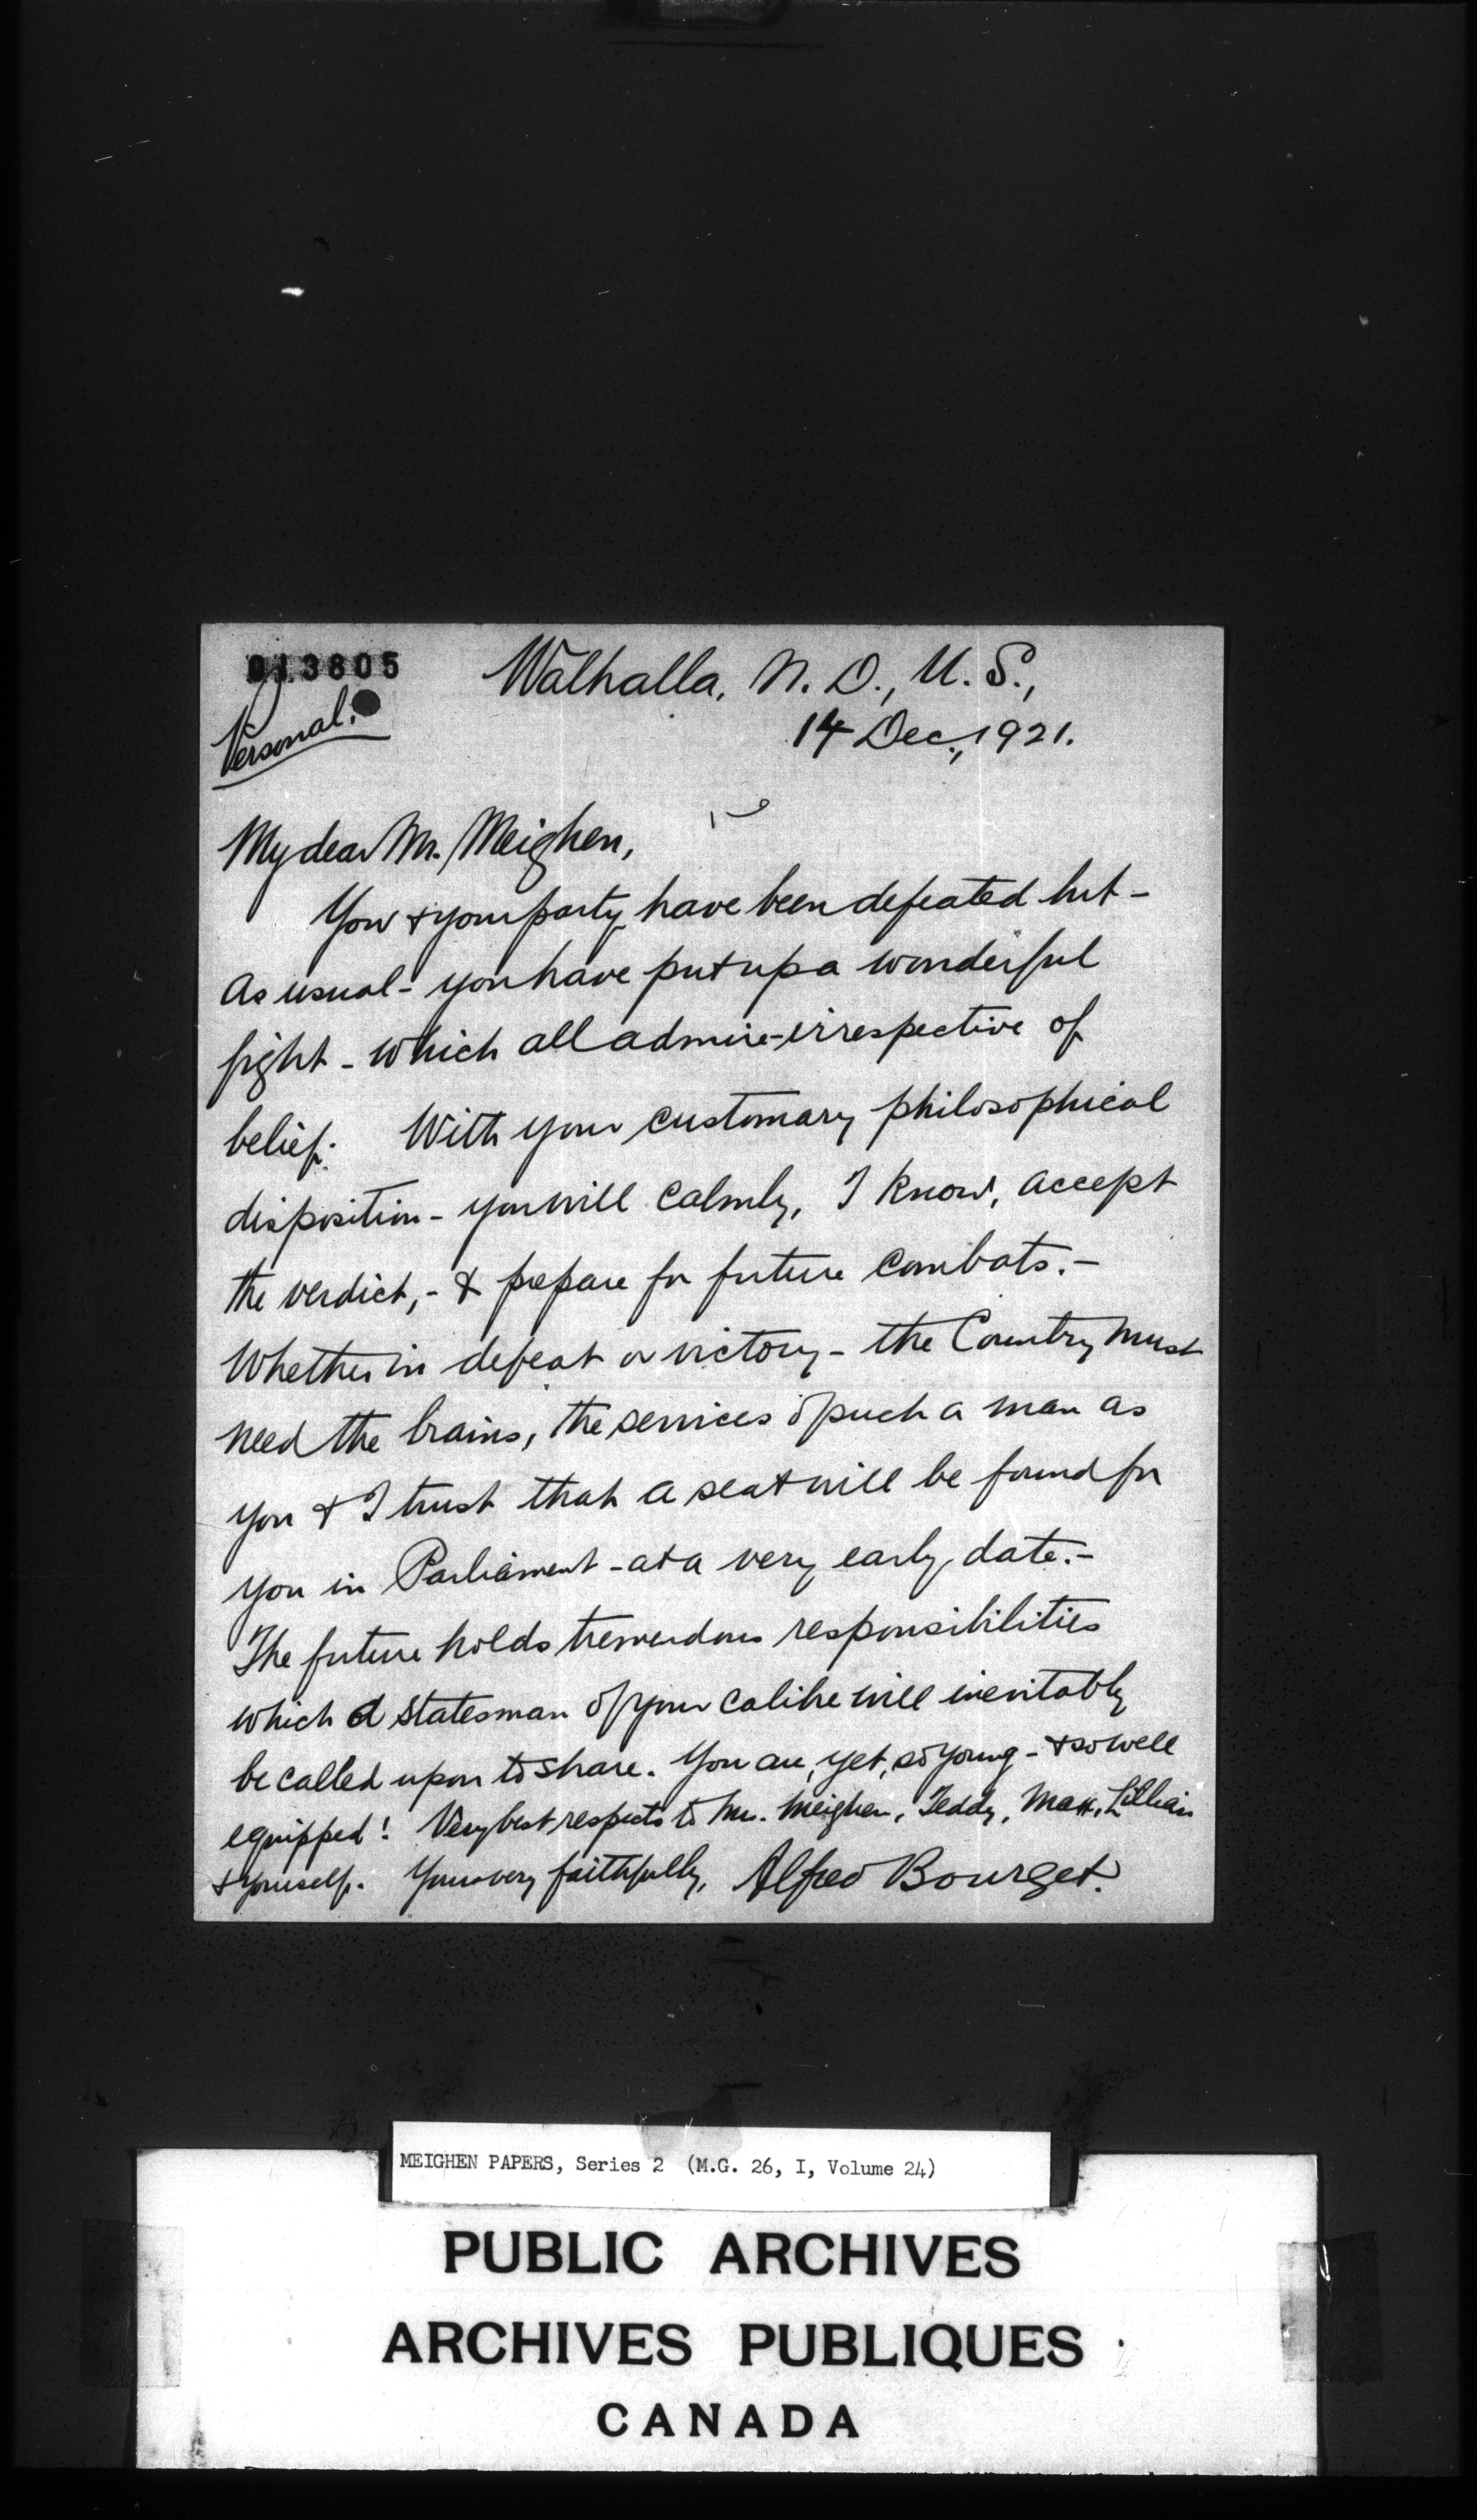 013805
Walhalla, N. D., U. S.,
Personal.
14 Dec., 1921.
My dear Mr. Meighen,
You & your party have been defeated but -
as usual - you have put up a wonderful
fight - which all admire - irrespective of
belief. With your customary philosophical
disposition - you will calmly, I know, accept
the verdict, - & prepare for future combats. -
Whether in defeat or victory - the Country must
need the brains, the services of such a man as
you & I trust that a seat will be found for
you in Parliament - at a very early date. -
The future holds tremendous responsibilities
which a statesman of your calibre will inevitably
be called upon to share. You are, yet, so young - & so well
equipped! Very best respects to Mrs. Meighen, Teddy, Max, Lillian
& yourself. Yours very faithfully, Alfred Bourget.
MEIGHEN PAPERS, Series 2 (M.G. 26, I, Volume 24)
PUBLIC ARCHIVES
ARCHIVES PUBLIQUES
CANADA